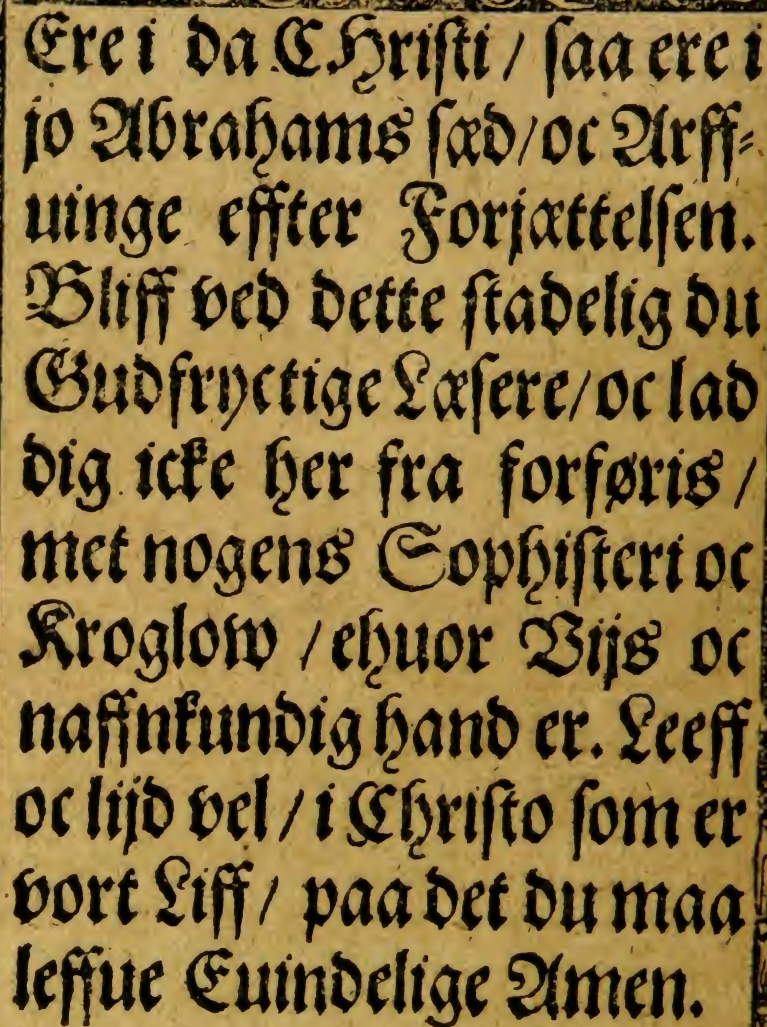 Ere i da CHriſti / ſaa ere i
jo Abrahams ſæd / oc Arff⸗
uinge effter Forjættelſen.
Bliff ved dette ſtadelig du
Gudfryctige Læſere / oc lad
dig icke her fra forføris /
met nogens Sophiſteri oc
Kroglow / ehuor Vijs oc
naffnkundig hand er. Leeff
oc lijd vel / i Chriſto ſom er
vort Liff / paa det du maa
leffue Euindelige Amen.